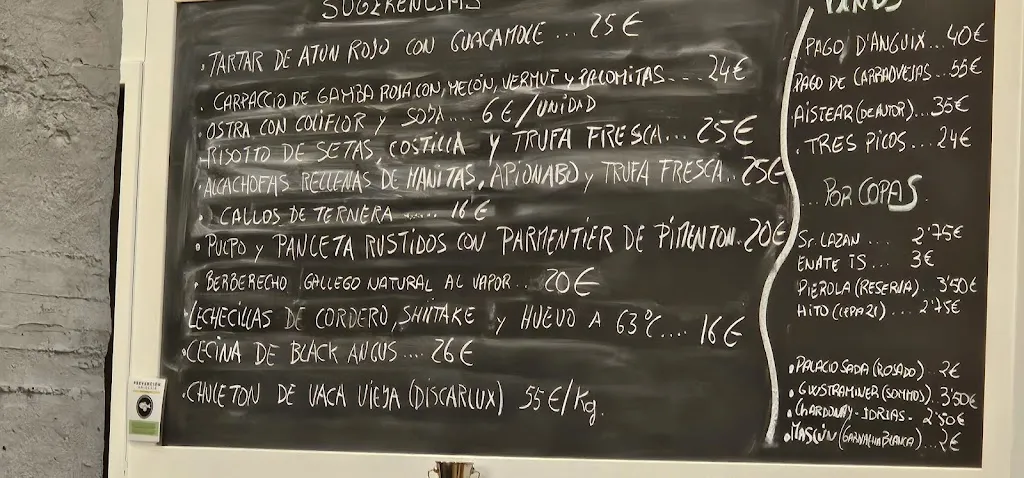 SUGERENCIAS
· TARTAR DE ATUN ROJO CON GUACAMOLE ... 25€
· CARPACCIO DE GAMBA ROJA CON, MELÓN, VERMUT Y PALOMITAS .... 24€
· OSTRA CON COLIFLOR Y SODA .... 6€/UNIDAD
· RISOTTO DE SETAS, COSTILLA Y TRUFA FRESCA... 25€
· ALCACHOFAS RELLENAS DE MANITAS, APIONABO Y TRUFA FRESCA.. 25€
· CALLOS DE TERNERA ...... 16€
· PULPO Y PANCETA RUSTIDOS CON PARMENTIER DE PIMENTON. 20€
· BERBERECHO GALLEGO NATURAL AL VAPOR... 20€
LECHECILLAS DE CORDERO, SHIITAKE Y HUEVO A 63ºC.... 16€
· CECINA DE BLACK ANGUS .... 26€
· CHULETON DE VACA VIEJA (DISCARLUX) 55€/Kg.
PREVENCIÓN
VINOS
PAGO D'ANGUIX... 40€
PAGO DE CARRAOVEJAS... 55€
AISTEAR (DE AUTOR)... 35€
. TRES PICOS... 24€
... POR COPAS
Sr. LAZAN ... 2'75€
ENATE TS... 3€
PIEROLA (RESERVA). 3'50€
HITO (CEPA 21) ... 2'75€
· PALACIO SADA (ROSADO) . 2€
· GWSTRAMINER (SOMMOS) 3'50€
· CHARDONAY - IDRIAS - 2'50€
· MASCÚN (GARNACHA BLANCA)... 2€